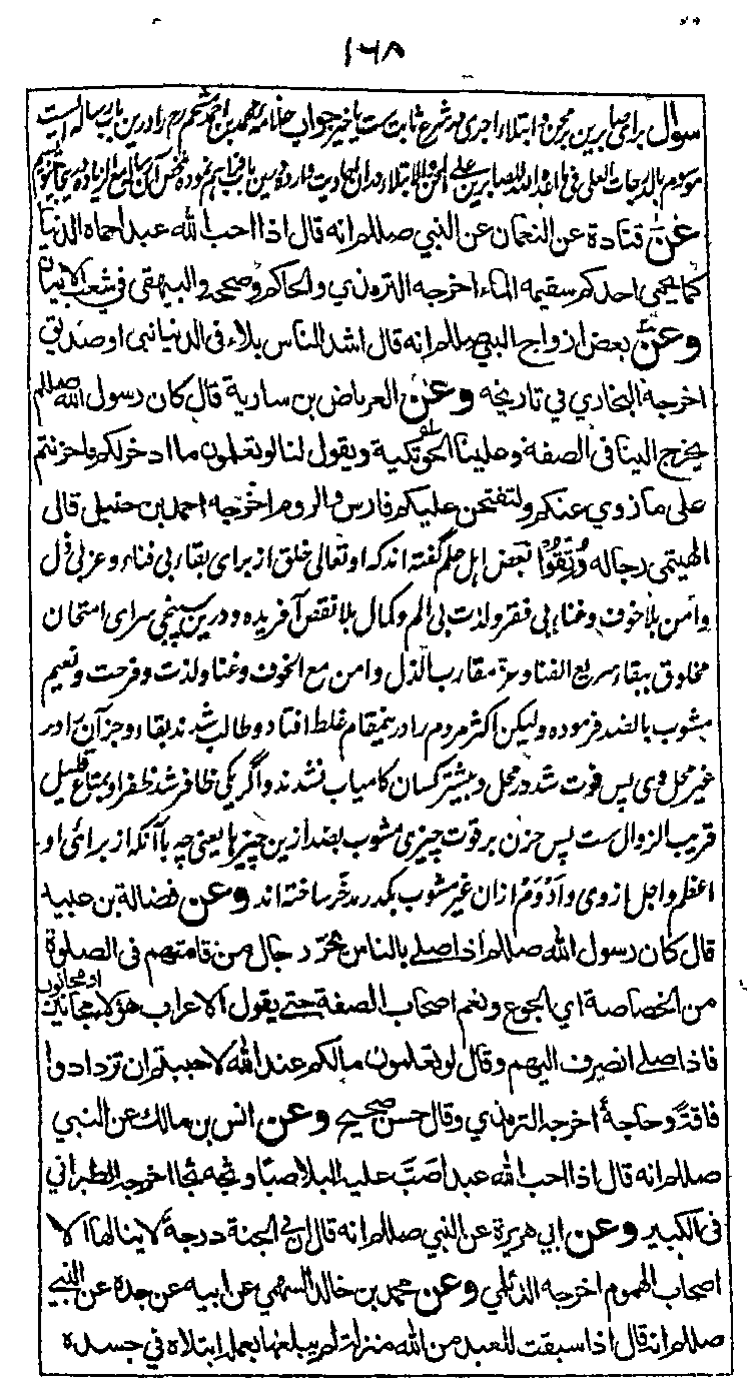 ۱۶۸
سوال برای صابرین بر محن و ابتلاء اجری در شرع ثابت ست یا خیر جواب علامه محمد بن احمد رح را درین باب رساله ایست
موسوم بالدرجات العلی فی ما اعد الله للصابرین علی المحن و الابتلاء و در ان احادیث وارده درین باب فراهم نموده
عن قتادة عن النعمان عن النبي صللم انه قال اذا احب الله عبدا حماه الدنيا
كما يحمي احدكم سقيمه الماء اخرجه الترمذي والحاكم وصححه والبيهقي في شعب الايمان
وعن بعض ازواج النبي صللم انه قال اشد الناس بلاء في الدنيا نبي او صديق
اخرجه البخاري في تاريخه وعن العرباض بن سارية قال كان رسول الله صللم
يخرج الينا في الصفة وعلينا الحوتكية ويقول لنا لو تعلمون ما ادخر لكم ما حزنتم
على ما زوي عنكم ولتفتحن عليكم فارس والروم اخرجه احمد بن حنبل قال
الهيتمي رجاله وُثِّقُوا بعض اهل علم گفته اند که او تعالی خلق از برای بقاء بی فناء و عز بی ذل
وامن بلا خوف و غناء بی فقر و لذت بی الم و کمال بلا نقص آفریده و درین سپنجی سرای امتحان
مخلوق ببقاء سریع الفنا و عز مقارب بالذل و امن مع الخوف و غنا و لذت و فرحت و نعیم
مشوب بالضد فرموده ولیکن اکثر مردم را درینمقام غلط افتاد و طالب شدند بقاء و جز آن را در
غیر محل وی پس فوت شد در محل و بیشتر کسان کامیاب نشدند و اگر یکی ظافر شد ظفر او بمتاع قلیل
قریب الزوال ست پس حزن بر فوت چیزی مشوب بضد ازین چیزها یعنی چه با آنکه از برای او
اعظم و اجل از وی و اَدْوَمُ ازان غیر مشوب بکدر مدخر ساخته اند وعن فضالة بن عبيد
قال كان رسول الله صللم اذا صلى بالناس يخرّ رجال من قامتهم في الصلوة
من الخصاصة اي الجوع وهم اصحاب الصفة حتى يقول الاعراب هؤلاء مجانين او مجانون
فاذا صلى انصرف اليهم وقال لو تعلمون ما لكم عند الله لاحببتم ان تزدادوا
فاقةً وحاجةً اخرجه الترمذي وقال حسن صحيح وعن انس بن مالك عن النبي
صللم انه قال اذا احب الله عبدا صَبَّ عليه البلا صبًّا وثجه ثجا اخرجه الطبراني
في الكبير وعن ابي هريرة عن النبي صللم انه قال ان في الجنة درجة لا ينالها الا
اصحاب الهموم اخرجه الديلمي وعن محمد بن خالد السهمي عن ابيه عن جده عن النبي
صللم انه قال اذا سبقت للعبد من الله منزلة لم يبلغها بعمله ابتلاه في جسده